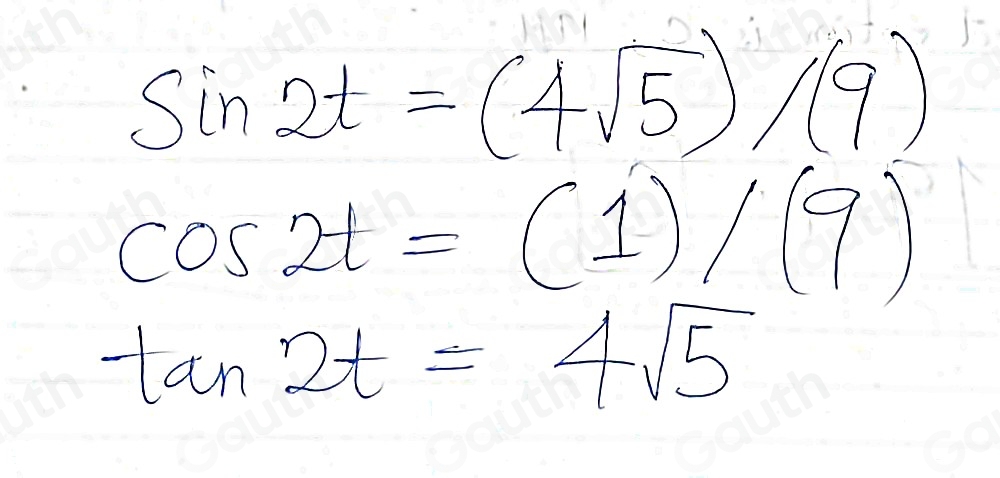 sin 2t = (4√5) / (9)
cos 2t = (1) / (9)
tan 2t = 4√5
Gauth